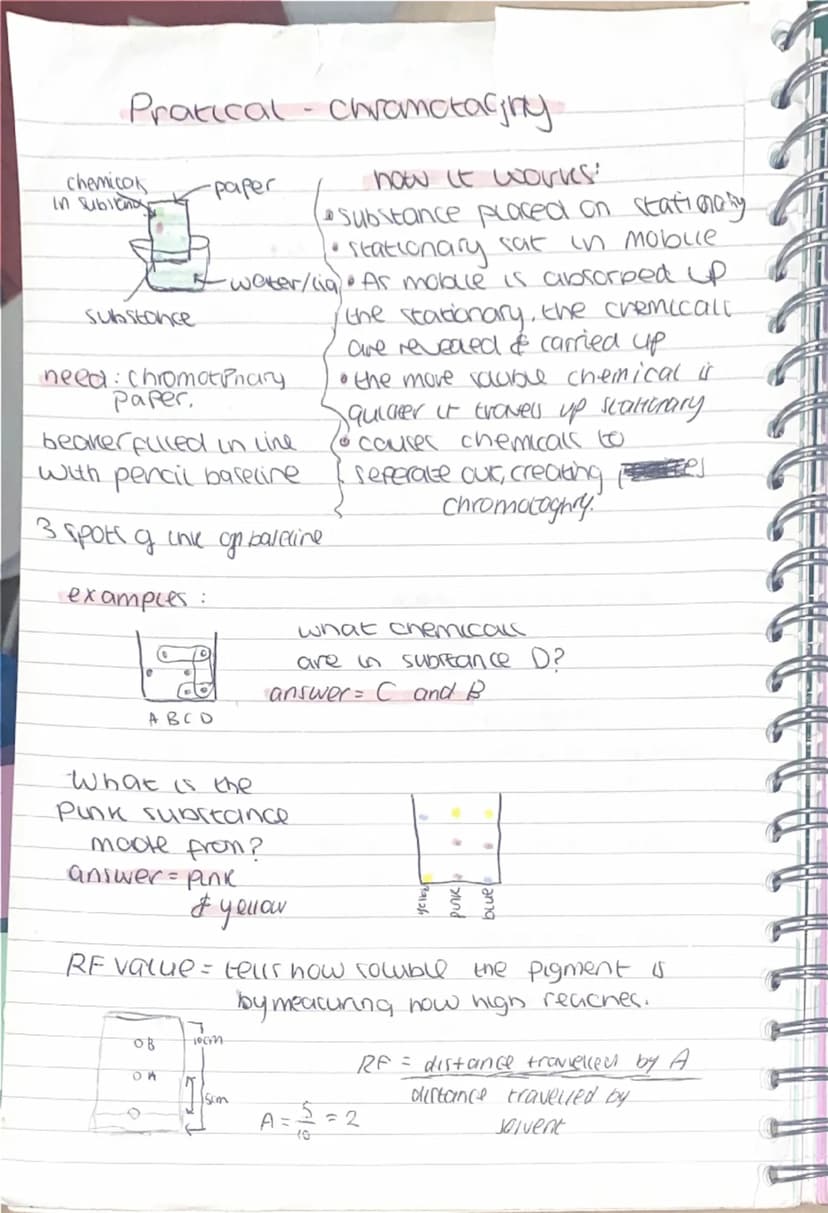 Pratical - chromotagjhy
chemicals
in substance
paper
water/liq
substance
need: chromotphrary
paper.
beaker filled in line
with pencil baseline
3 spots of ink on baseline
how it works:
• substance placed on stationary
• stationary sat in mobile
• As mobile is absorbed up
the stationary, the chemicals
are revealed & carried up
• the more soluble chemical is
quicker it travels up stationary
• causes chemicals to
seperate out, creating
chromotoghry.
examples:
A B C D
what chemicals
are in substance D?
answer = C and B
What is the
Pink substance
made from?
answer = pink
& yellow
yellow
pink
blue
RF value = tells how soluble the pigment is
by measuring how high reaches.
B
A
10cm
5cm
A = 5/10 = 2
RF = distance travelled by A
distance travelled by
solvent